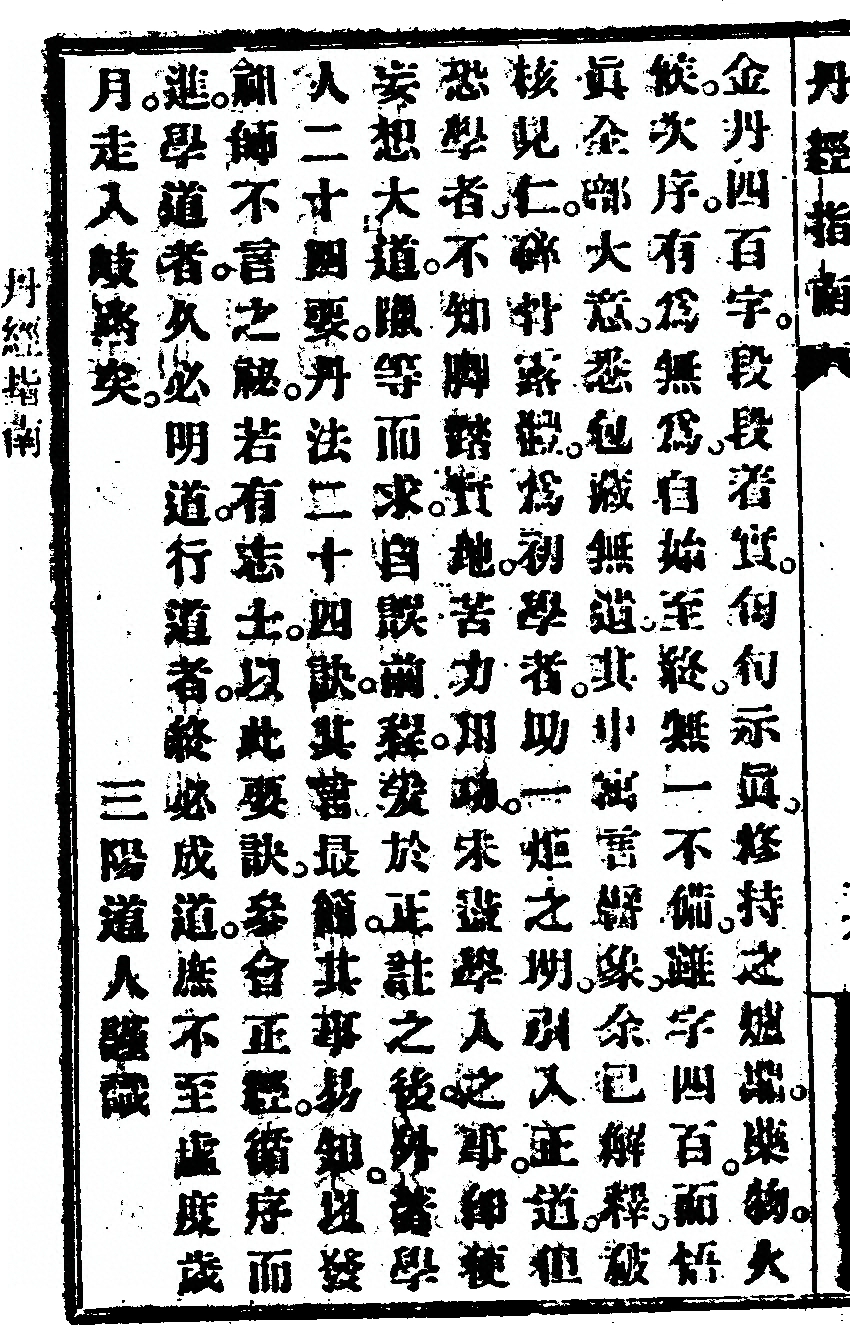 丹經指南
金丹四百字。段段著實。句句示眞。修持之爐鼎。藥物。火
候。次序。有爲無爲。自始至終。無一不備。雖字四百。而悟
眞全部大意。悉包藏無遺。其中寓言譬象。余已解釋。破
核見仁。碎骨露髓。爲初學者。助一炬之明。引入正道。但
恐學者不知脚踏實地。苦力用功。未盡學人之事。卽使
妄想大道。躐等而求。自誤前程。爰於正註之後。外著學
人二十四要。丹法二十四訣。其言最簡。其事易知。以發
祖師不言之祕。若有志士。以此要訣。參會正經。循序而
進。學道者。久必明道。行道者。終必成道。庶不至虛度歲
月。走入岐路矣。　三陽道人謹識
丹經指南